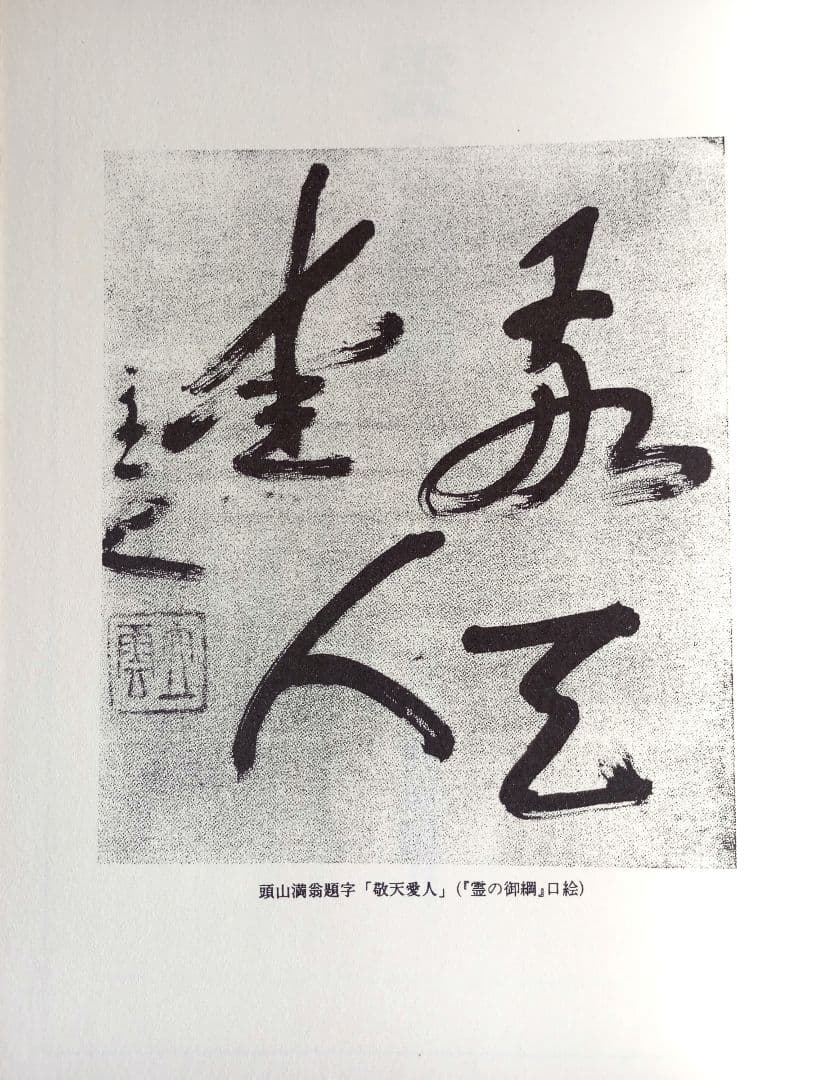 敬天
愛人
立雲
頭山満翁題字「敬天愛人」(『霊の御綱』口絵)